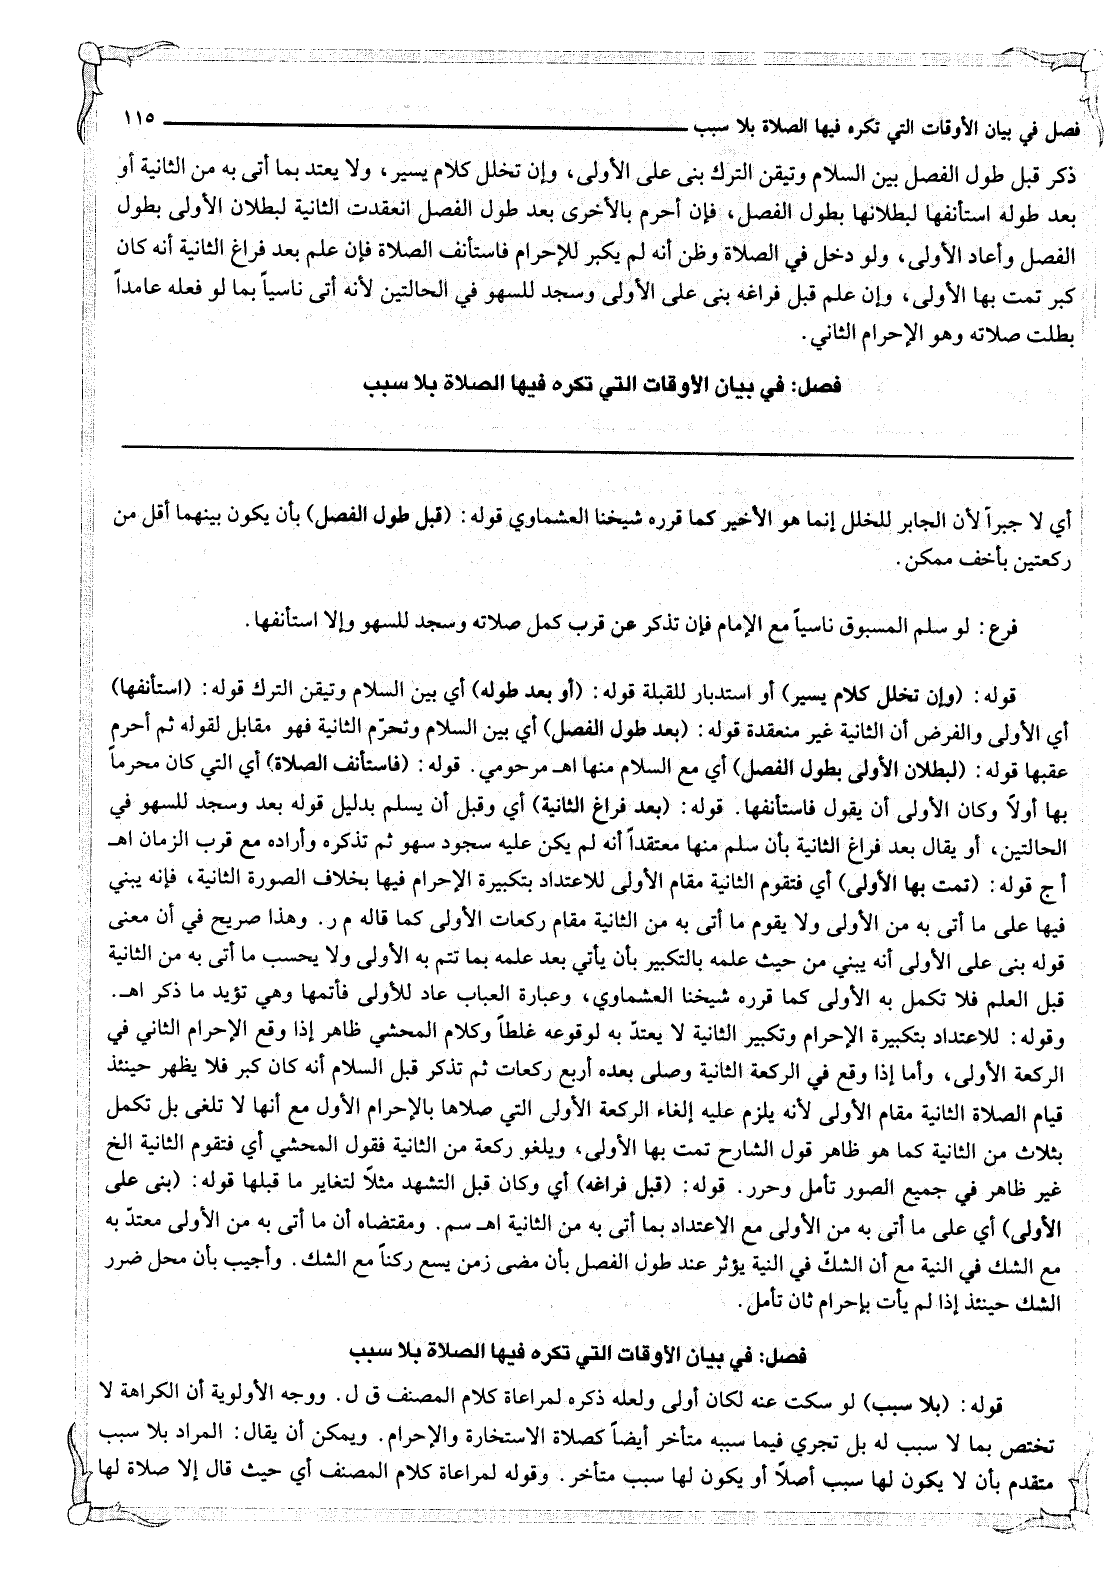 فصل في بيان الأوقات التي تكره فيها الصلاة بلا سبب ١١٥
ذكر قبل طول الفصل بين السلام وتيقن الترك بنى على الأولى، وإن تخلل كلام يسير، ولا يعتد بما أتى به من الثانية أو
بعد طوله استأنفها لبطلانها بطول الفصل، فإن أحرم بالأخرى بعد طول الفصل انعقدت الثانية لبطلان الأولى بطول
الفصل وأعاد الأولى، ولو دخل في الصلاة وظن أنه لم يكبر للإحرام فاستأنف الصلاة فإن علم بعد فراغ الثانية أنه كان
كبر تمت بها الأولى، وإن علم قبل فراغه بنى على الأولى وسجد للسهو في الحالتين لأنه أتى ناسياً بما لو فعله عامداً
بطلت صلاته وهو الإحرام الثاني.
فصل: في بيان الأوقات التي تكره فيها الصلاة بلا سبب
أي لا جبراً لأن الجابر للخلل إنما هو الأخير كما قرره شيخنا العشماوي قوله: (قبل طول الفصل) بأن يكون بينهما أقل من
ركعتين بأخف ممكن.
فرع: لو سلم المسبوق ناسياً مع الإمام فإن تذكر عن قرب كمل صلاته وسجد للسهو وإلا استأنفها.
قوله: (وإن تخلل كلام يسير) أو استدبار للقبلة قوله: (أو بعد طوله) أي بين السلام وتيقن الترك قوله: (استأنفها)
أي الأولى والفرض أن الثانية غير منعقدة قوله: (بعد طول الفصل) أي بين السلام وتحرّم الثانية فهو مقابل لقوله ثم أحرم
عقبها قوله: (لبطلان الأولى بطول الفصل) أي مع السلام منها اهـ مرحومي. قوله: (فاستأنف الصلاة) أي التي كان محرماً
بها أولاً وكان الأولى أن يقول فاستأنفها. قوله: (بعد فراغ الثانية) أي وقبل أن يسلم بدليل قوله بعد وسجد للسهو في
الحالتين، أو يقال بعد فراغ الثانية بأن سلم منها معتقداً أنه لم يكن عليه سجود سهو ثم تذكره وأراده مع قرب الزمان اهـ
أ ج قوله: (تمت بها الأولى) أي فتقوم الثانية مقام الأولى للاعتداد بتكبيرة الإحرام فيها بخلاف الصورة الثانية، فإنه يبني
فيها على ما أتى به من الأولى ولا يقوم ما أتى به من الثانية مقام ركعات الأولى كما قاله م ر. وهذا صريح في أن معنى
قوله بنى على الأولى أنه يبني من حيث علمه بالتكبير بأن يأتي بعد علمه بما تتم به الأولى ولا يحسب ما أتى به من الثانية
قبل العلم فلا تكمل به الأولى كما قرره شيخنا العشماوي، وعبارة العباب عاد للأولى فأتمها وهي تؤيد ما ذكر اهـ.
وقوله: للاعتداد بتكبيرة الإحرام وتكبير الثانية لا يعتدّ به لوقوعه غلطاً وكلام المحشي ظاهر إذا وقع الإحرام الثاني في
الركعة الأولى، وأما إذا وقع في الركعة الثانية وصلى بعده أربع ركعات ثم تذكر قبل السلام أنه كان كبر فلا يظهر حينئذ
قيام الصلاة الثانية مقام الأولى لأنه يلزم عليه إلغاء الركعة الأولى التي صلاها بالإحرام الأول مع أنها لا تلغى بل تكمل
بثلاث من الثانية كما هو ظاهر قول الشارح تمت بها الأولى، ويلغو ركعة من الثانية فقول المحشي أي فتقوم الثانية الخ
غير ظاهر في جميع الصور تأمل وحرر. قوله: (قبل فراغه) أي وكان قبل التشهد مثلاً لتغاير ما قبلها قوله: (بنى على
الأولى) أي على ما أتى به من الأولى مع الاعتداد بما أتى به من الثانية اهـ سم. ومقتضاه أن ما أتى به من الأولى معتدّ به
مع الشك في النية مع أن الشكّ في النية يؤثر عند طول الفصل بأن مضى زمن يسع ركناً مع الشك. وأجيب بأن محل ضرر
الشك حينئذ إذا لم يأت بإحرام ثان تأمل.
فصل: في بيان الأوقات التي تكره فيها الصلاة بلا سبب
قوله: (بلا سبب) لو سكت عنه لكان أولى ولعله ذكره لمراعاة كلام المصنف ق ل. ووجه الأولوية أن الكراهة لا
تختص بما لا سبب له بل تجري فيما سببه متأخر أيضاً كصلاة الاستخارة والإحرام. ويمكن أن يقال: المراد بلا سبب
متقدم بأن لا يكون لها سبب أصلاً أو يكون لها سبب متأخر. وقوله لمراعاة كلام المصنف أي حيث قال إلا صلاة لها